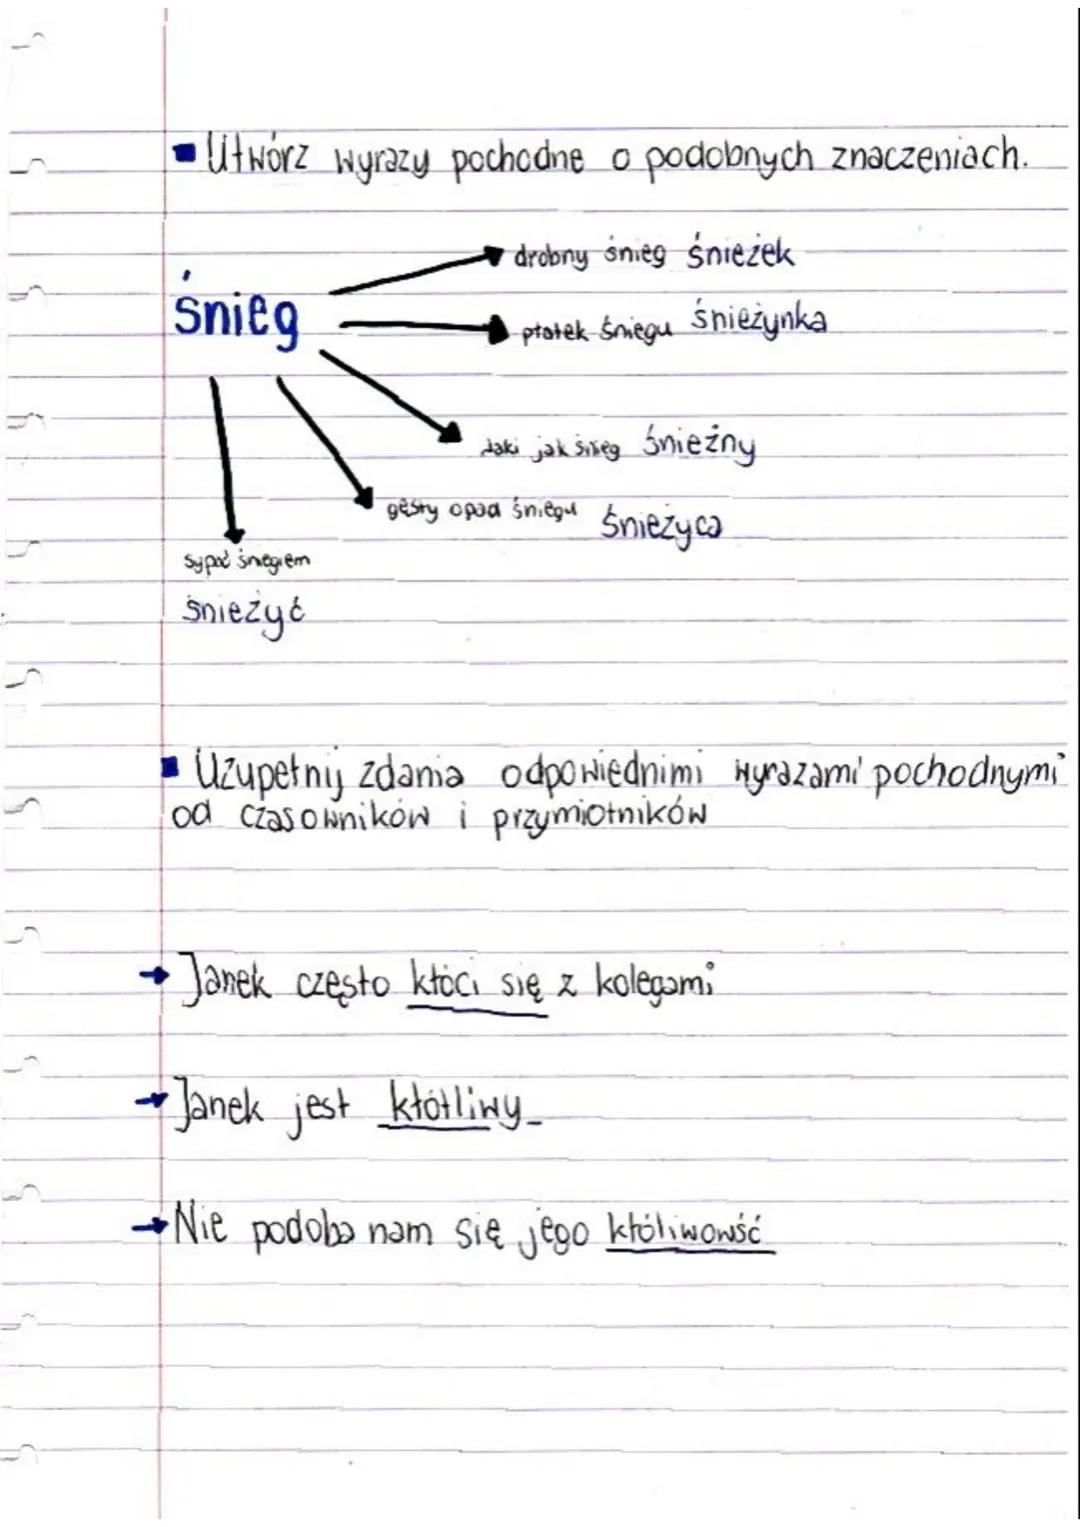 Utwórz wyrazy pochodne o podobnych znaczeniach.
drobny śnieg śnieżek
śnieg
płatek śniegu śnieżynka
taki jak śnieg śnieżny
gęsty opad śniegu śnieżyca
sypać śniegiem
śnieżyć
Uzupełnij zdania odpowiednimi wyrazami pochodnymi
od czasowników i przymiotników
Janek często kłóci się z kolegami
Janek jest kłótliwy
Nie podoba nam się jego kłóliwowść